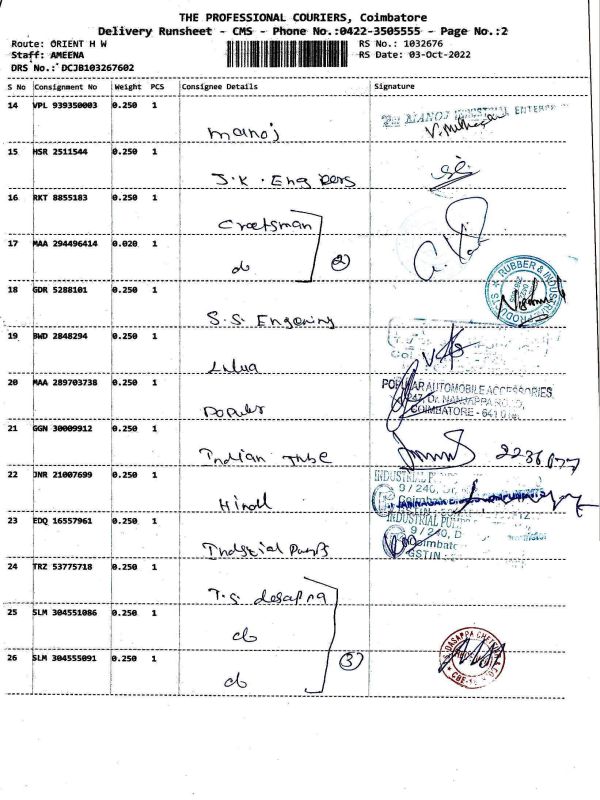 THE PROFESSIONAL COURIERS, Coimbatore
Delivery Runsheet - CMS - Phone No.:0422-3505555 - Page No.:2
Route: ORIENT H W
RS No.: 1032676
Staff: AMEENA
RS Date: 03-Oct-2022
DRS No.: DCJB103267602
S No Consignment No Weight PCS Consignee Details Signature
14 VPL 939350003 0.250 1
Manoj
MANOJ INDUSTRIAL ENTERPR
15 HSR 2511544 0.250 1
J.K. Engineers
16 RKT 8855183 0.250 1
Craftsman
17 MAA 294496414 0.020 1
do
2
RUBBER & INDUS PRODUCTS
18 GDR 5288101 0.250 1
S.S. Engening
19 BWD 2848294 0.250 1
20 MAA 289703738 0.250 1
Populer
POPULAR AUTOMOBILE ACCESSORIES
247, Dr. NANJAPPA ROAD,
COIMBATORE - 641 0
21 GGN 30009912 0.250 1
Indian Tube
22 JNR 21007699 0.250 1
INDUSTRIAL PU
9 / 240,
Coimbatore
23 EDQ 16557961 0.250 1
Industrial Pumps
INDUSTRIAL PUMP
9 / 240, D
Coimbato
GSTIN
24 TRZ 53775718 0.250 1
T.S. dasappa
25 SLM 304551086 0.250 1
do
26 SLM 304555091 0.250 1
do
3
DASAPPA CHETTIAR